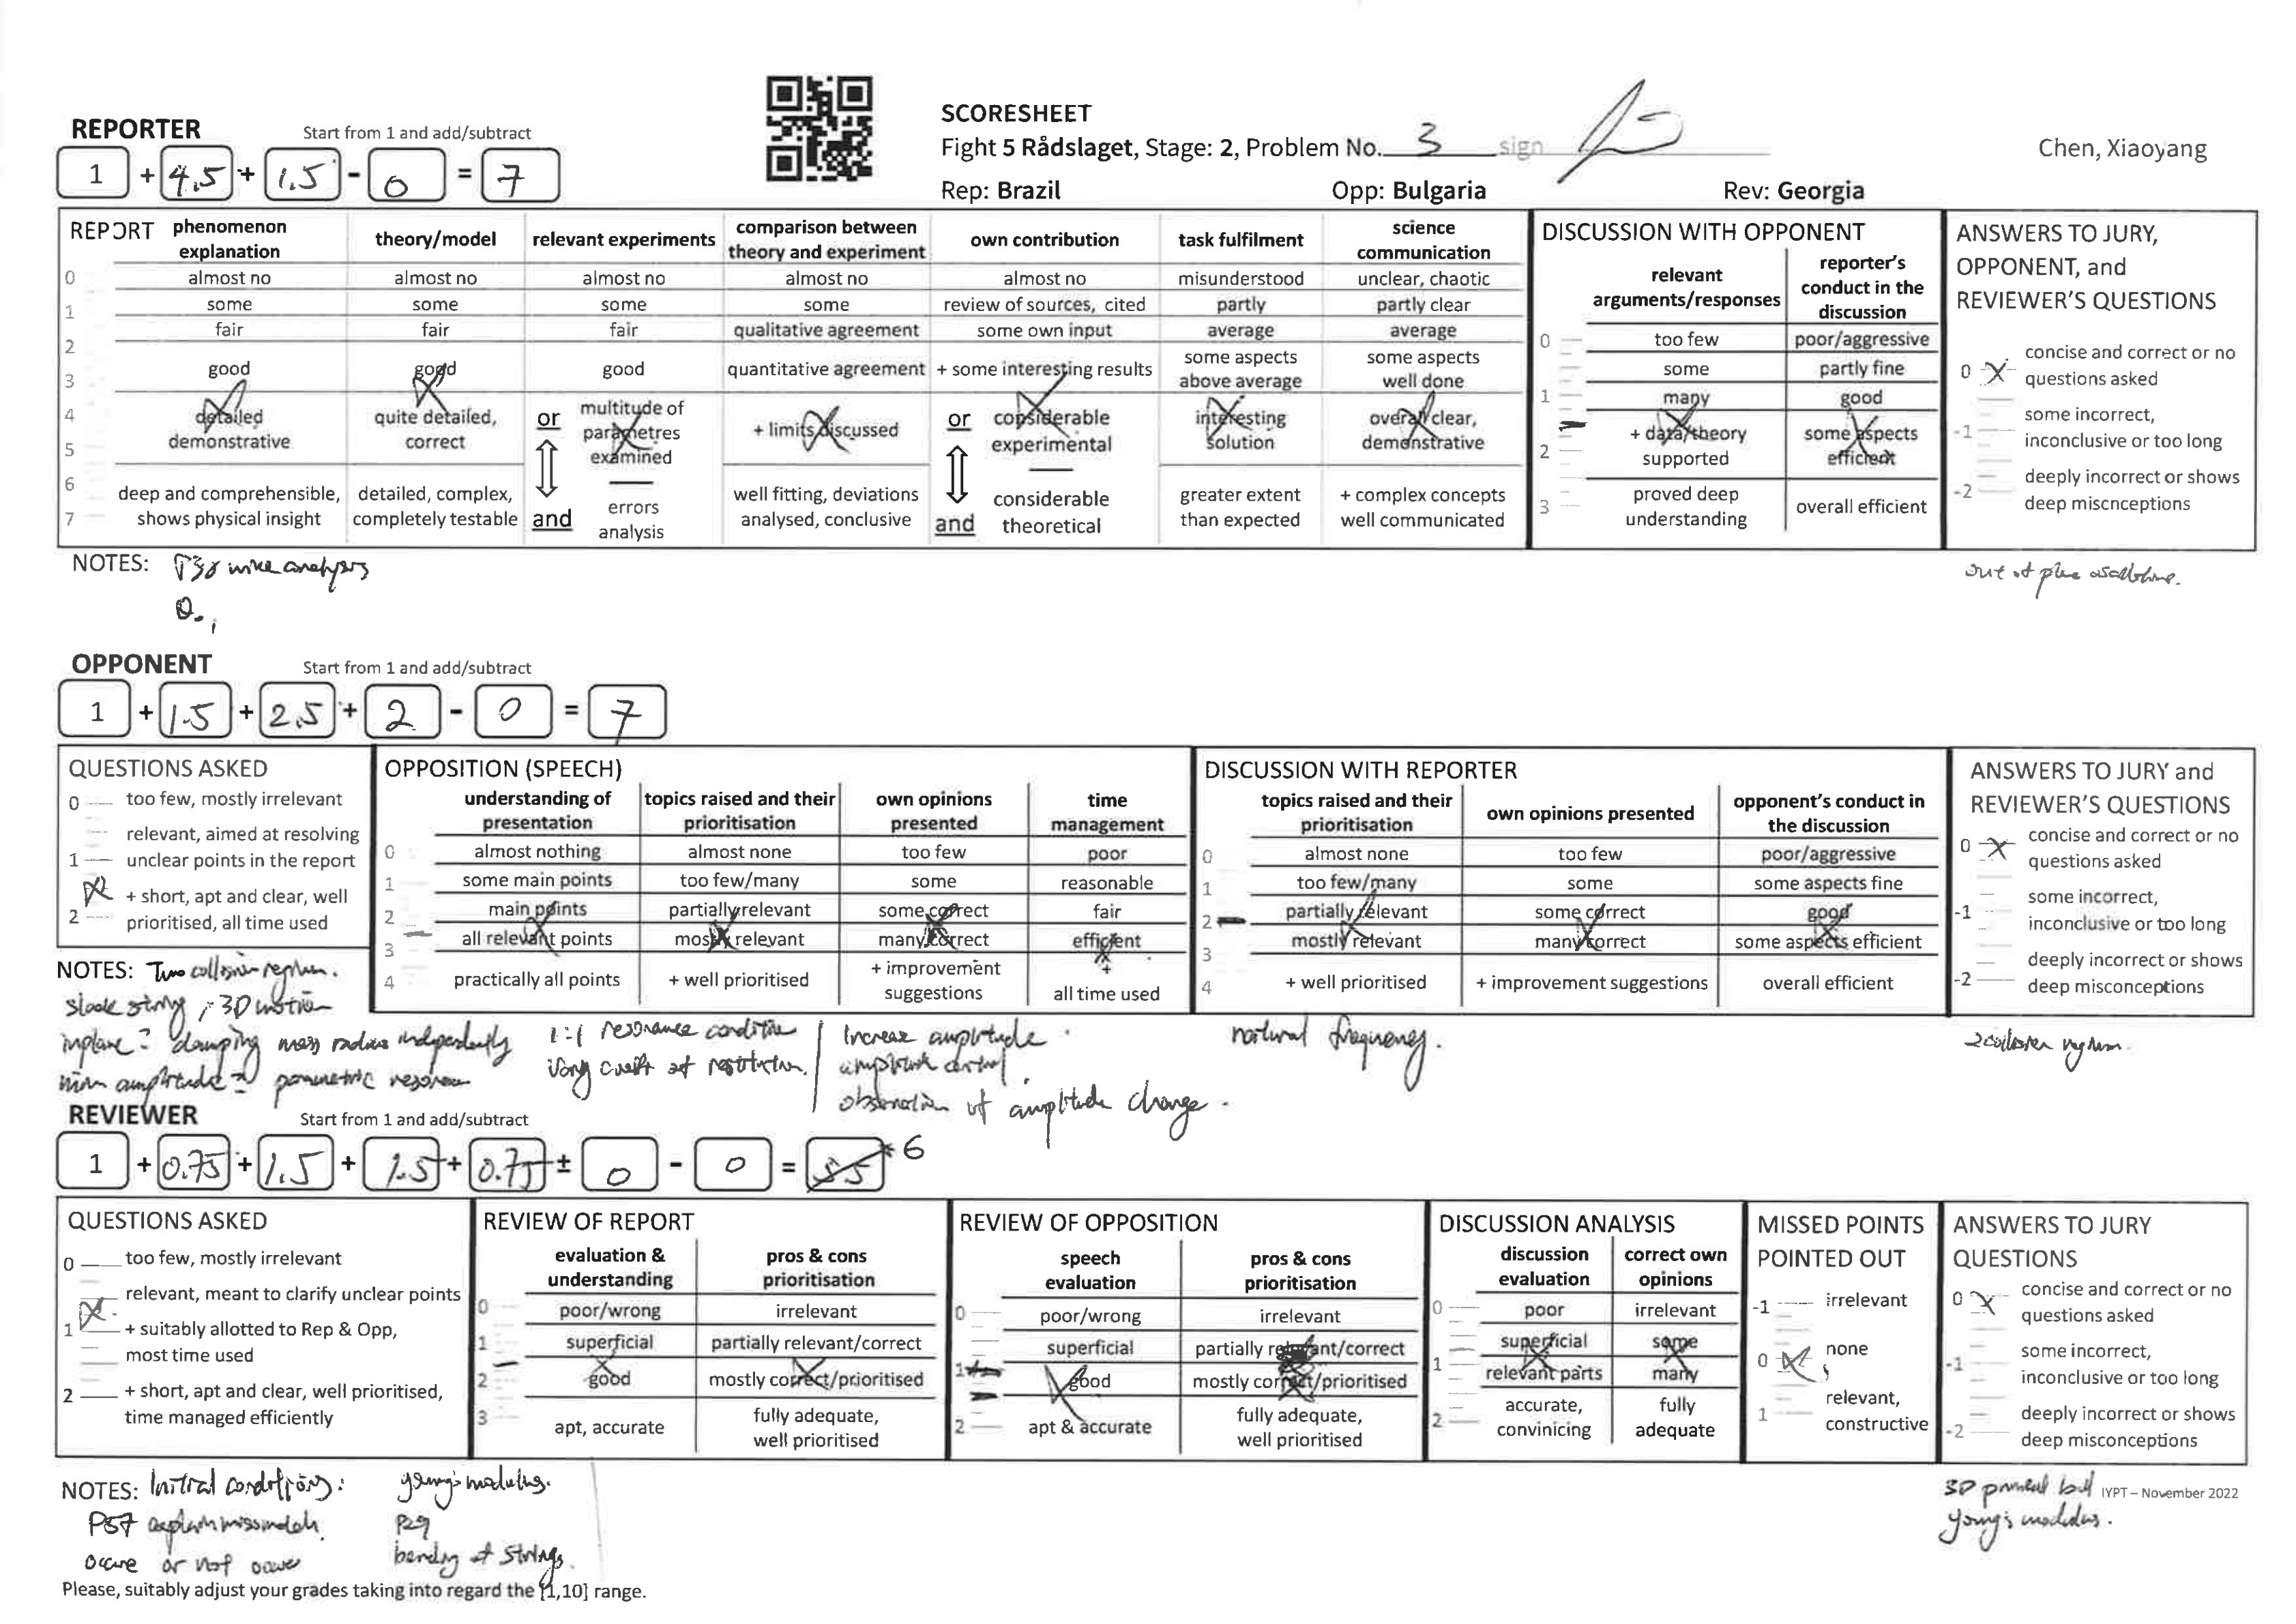 SCORESHEET
Fight 5 Rådslaget, Stage: 2, Problem No. 3 sign
Chen, Xiaoyang
Rep: Brazil Opp: Bulgaria Rev: Georgia
REPORTER Start from 1 and add/subtract
1 + 4.5 + 1.5 - 0 = 7
REPORT
phenomenon explanation
theory/model
relevant experiments
comparison between theory and experiment
own contribution
task fulfilment
science communication
0 almost no almost no almost no almost no almost no misunderstood unclear, chaotic
1 some some some some review of sources, cited partly partly clear
fair fair fair qualitative agreement some own input average average
2
3 good good good quantitative agreement + some interesting results some aspects above average some aspects well done
4 detailed demonstrative quite detailed, correct or multitude of parametres examined + limits discussed or considerable experimental interesting solution overall clear, demonstrative
5
6 deep and comprehensible, shows physical insight detailed, complex, completely testable and errors analysis well fitting, deviations analysed, conclusive and considerable theoretical greater extent than expected + complex concepts well communicated
7
DISCUSSION WITH OPPONENT
relevant arguments/responses
reporter's conduct in the discussion
0 too few poor/aggressive
some partly fine
1 many good
+ data/theory supported some aspects efficient
2
3 proved deep understanding overall efficient
ANSWERS TO JURY, OPPONENT, and REVIEWER'S QUESTIONS
0 concise and correct or no questions asked
-1 some incorrect, inconclusive or too long
-2 deeply incorrect or shows deep miscnceptions
NOTES:
OPPONENT Start from 1 and add/subtract
1 + 1.5 + 2.5 + 2 - 0 = 7
QUESTIONS ASKED
0 too few, mostly irrelevant
relevant, aimed at resolving
1 unclear points in the report
+ short, apt and clear, well
2 prioritised, all time used
OPPOSITION (SPEECH)
understanding of presentation
topics raised and their prioritisation
own opinions presented
time management
0 almost nothing almost none too few poor
1 some main points too few/many some reasonable
2 main points partially relevant some correct fair
3 all relevant points mostly relevant many correct efficient
4 practically all points + well prioritised + improvement suggestions + all time used
DISCUSSION WITH REPORTER
topics raised and their prioritisation
own opinions presented
opponent's conduct in the discussion
0 almost none too few poor/aggressive
1 too few/many some some aspects fine
2 partially relevant some correct good
3 mostly relevant many correct some aspects efficient
4 + well prioritised + improvement suggestions overall efficient
ANSWERS TO JURY and REVIEWER'S QUESTIONS
0 concise and correct or no questions asked
-1 some incorrect, inconclusive or too long
-2 deeply incorrect or shows deep misconceptions
NOTES: Two collision regium.
slack string, 3D motion
inplane: damping mass radius independently
min amplitude parametric
1:1 resonance condition
Increase amplitude
amplitude control
observation of amplitude change.
natural frequency.
REVIEWER Start from 1 and add/subtract
1 + 0.75 + 1.5 + 1.5 + 0.75 ± 0 - 0 = 5.5 6
QUESTIONS ASKED
0 too few, mostly irrelevant
relevant, meant to clarify unclear points
1 + suitably allotted to Rep & Opp, most time used
2 + short, apt and clear, well prioritised, time managed efficiently
REVIEW OF REPORT
evaluation & understanding
pros & cons prioritisation
0 poor/wrong irrelevant
1 superficial partially relevant/correct
2 good mostly correct/prioritised
3 apt, accurate fully adequate, well prioritised
REVIEW OF OPPOSITION
speech evaluation
pros & cons prioritisation
0 poor/wrong irrelevant
superficial partially relevant/correct
1 good mostly correct/prioritised
2 apt & accurate fully adequate, well prioritised
DISCUSSION ANALYSIS
discussion evaluation
correct own opinions
0 poor irrelevant
superficial some
1 relevant parts many
2 accurate, convinicing fully adequate
MISSED POINTS POINTED OUT
-1 irrelevant
0 none
1 relevant, constructive
ANSWERS TO JURY QUESTIONS
0 concise and correct or no questions asked
-1 some incorrect, inconclusive or too long
-2 deeply incorrect or shows deep misconceptions
NOTES: Initial conditions: young's modulus.
P57 explain P29
occure or not occure bending of strings.
young's modulus.
IYPT – November 2022
Please, suitably adjust your grades taking into regard the [1,10] range.